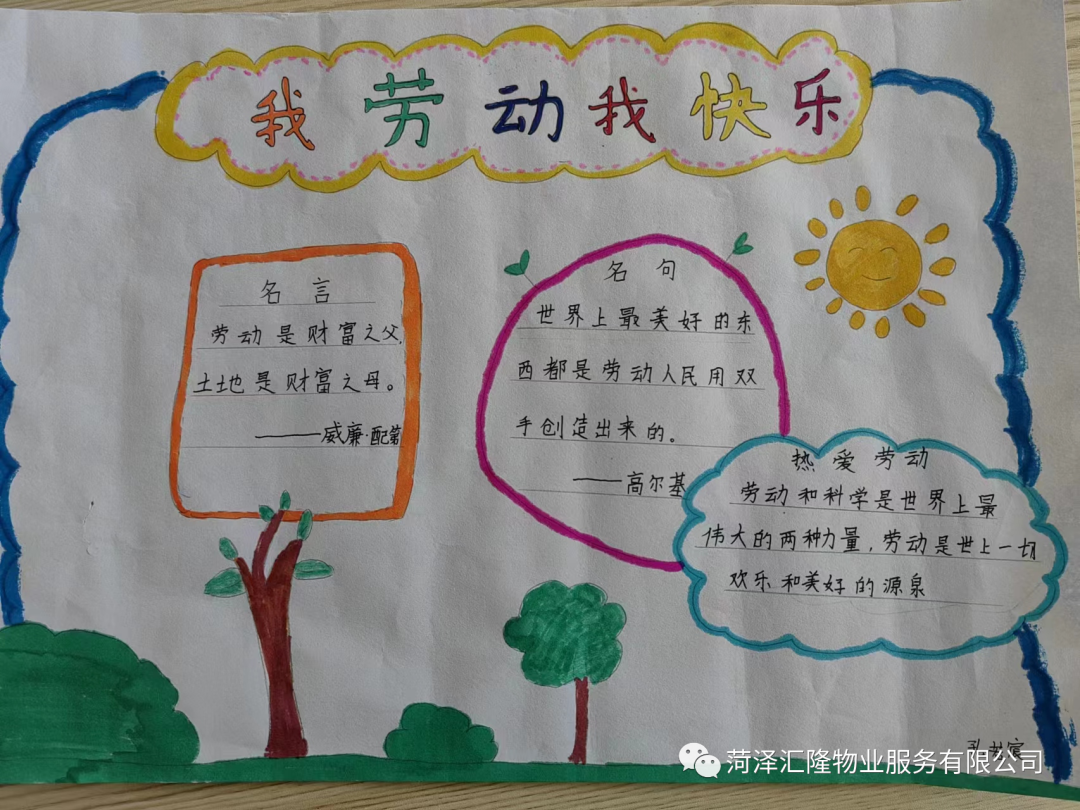 我劳动我快乐
名言
劳动是财富之父,
土地是财富之母。
——威廉·配第
名句
世界上最美好的东
西都是劳动人民用双
手创造出来的。
——高尔基
热爱劳动
劳动和科学是世界上最
伟大的两种力量,劳动是世上一切
欢乐和美好的源泉
菏泽汇隆物业服务有限公司